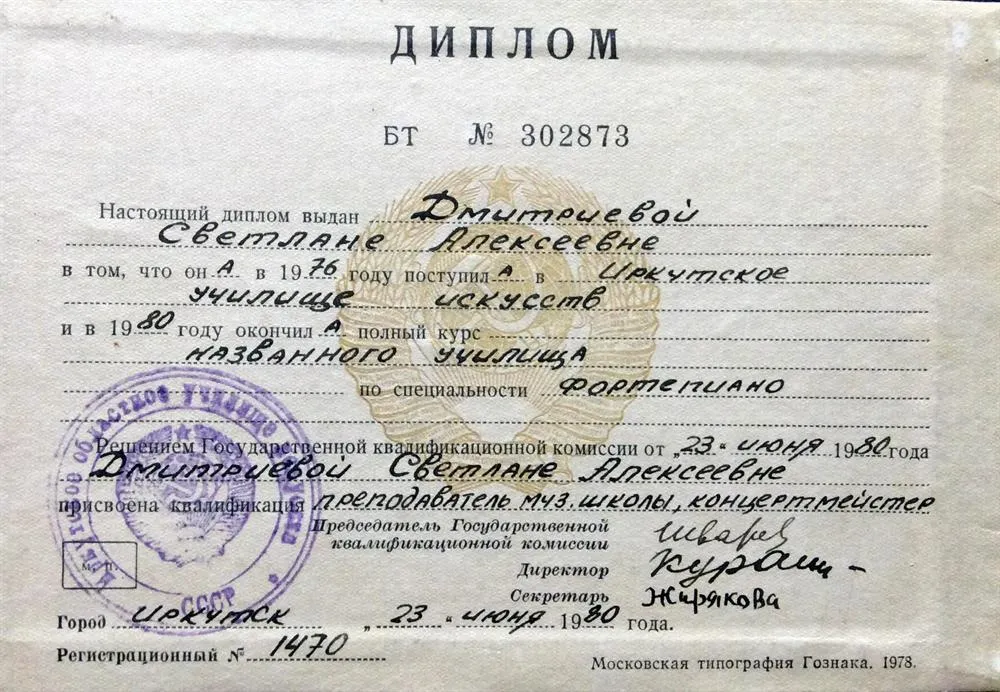 ДИПЛОМ
БТ № 302873
Настоящий диплом выдан Дмитриевой
Светлане Алексеевне
в том, что он а в 1976 году поступил а в Иркутское
училище искусств
и в 1980 году окончил а полный курс
названного училища
по специальности фортепиано
Решением Государственной квалификационной комиссии от „23“ июня 1980 года
Дмитриевой Светлане Алексеевне
присвоена квалификация преподаватель муз. школы, концертмейстер
Председатель Государственной
квалификационной комиссии
Директор
Секретарь Жирякова
м. п.
Иркутское областное училище искусств
СССР
Город Иркутск „23“ июня 1980 года.
Регистрационный № 1470
Московская типография Гознака. 1978.